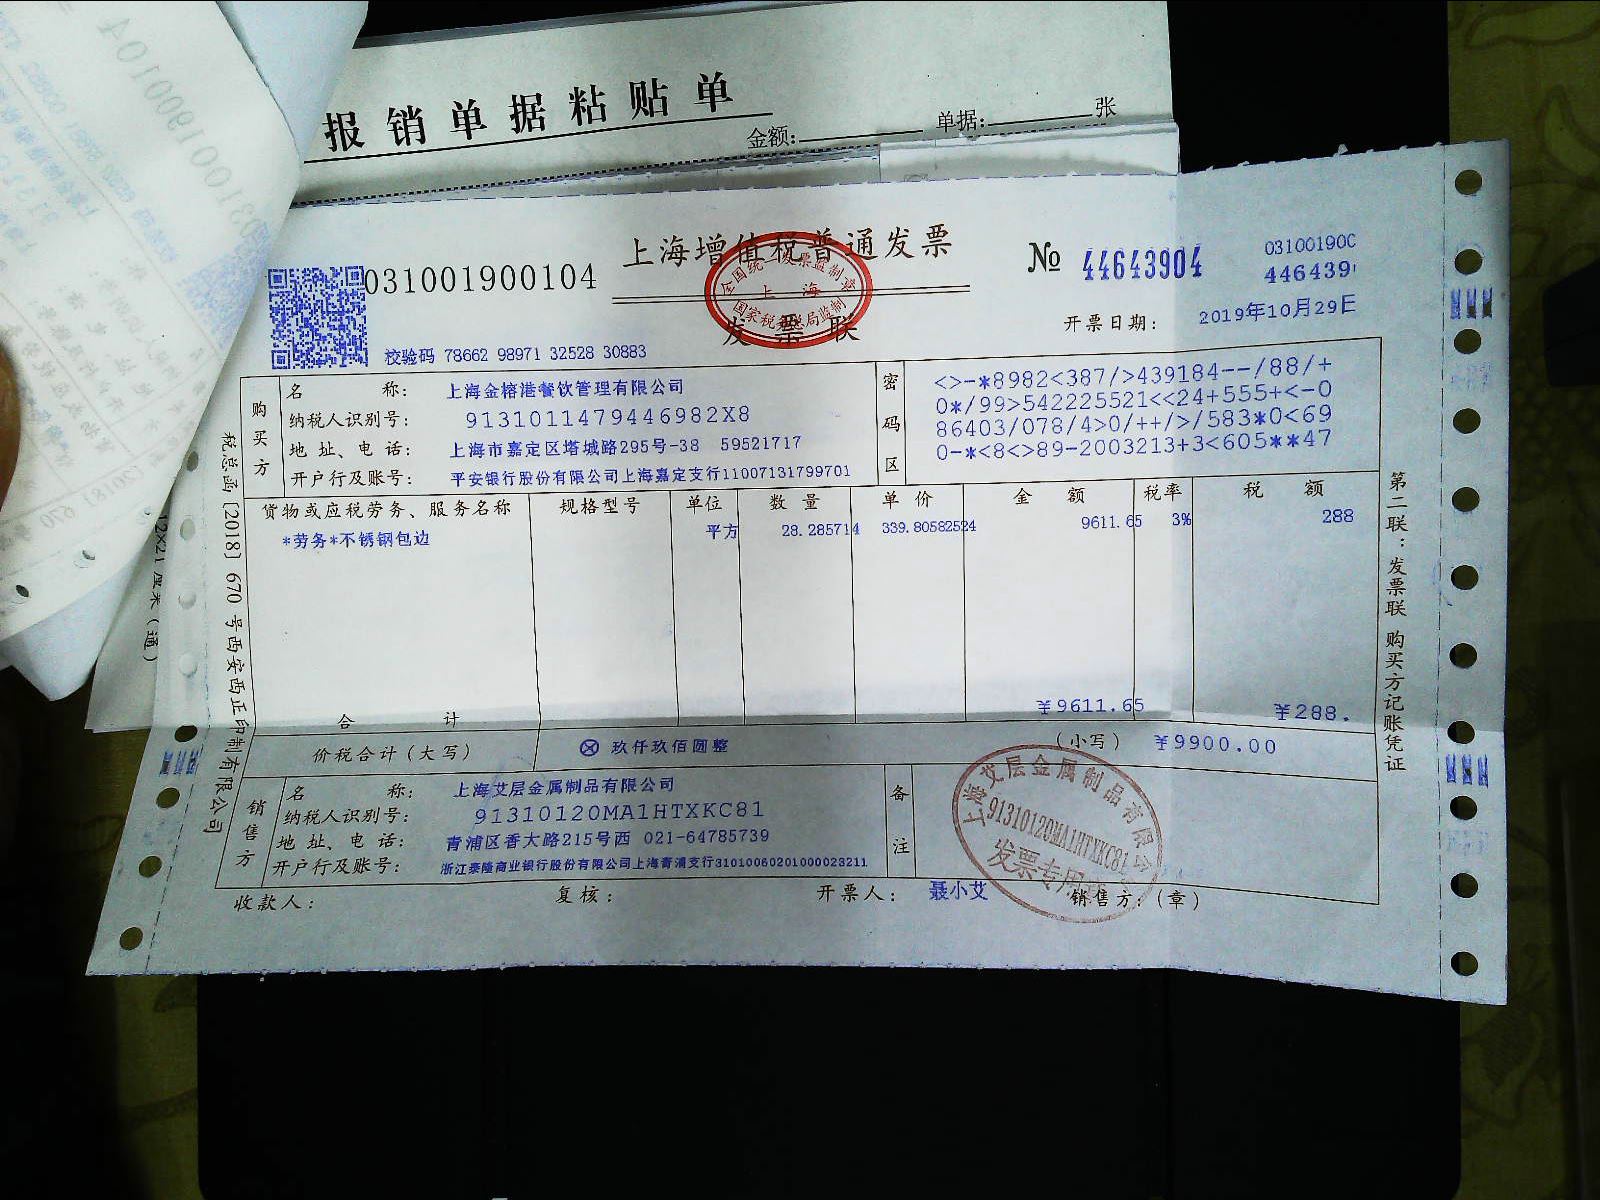 报销单据粘贴单
金额: 单据: 张
上海增值税普通发票
031001900104
№ 44643904
03100190
446439
全国统一发票监制章
上海
国家税务总局监制
发票联
开票日期: 2019年10月29日
校验码 78662 98971 32528 30883
购买方
名称: 上海金榕港餐饮管理有限公司
纳税人识别号: 9131011479446982X8
地址、电话: 上海市嘉定区塔城路295号-38 59521717
开户行及账号: 平安银行股份有限公司上海嘉定支行11007131799701
密码区
<>-*8982<387/>439184--/88/+
0*/99>542225521<<24+555+<-0
86403/078/4>0/++/>/583*0<69
0-*<8<>89-2003213+3<605**47
货物或应税劳务、服务名称 规格型号 单位 数量 单价 金额 税率 税额
*劳务*不锈钢包边 平方 28.285714 339.80582524 9611.65 3% 288
合计 ¥9611.65 ¥288.
价税合计(大写) ⊗ 玖仟玖佰圆整 (小写) ¥9900.00
销售方
名称: 上海艾层金属制品有限公司
纳税人识别号: 91310120MA1HTXKC81
地址、电话: 青浦区香大路215号西 021-64785739
开户行及账号: 浙江泰隆商业银行股份有限公司上海青浦支行31010060201000023211
备注
上海艾层金属制品有限公
91310120MA1HTXKC81
发票专用
收款人: 复核: 开票人: 聂小艾 销售方:(章)
税总函[2018]670号西安西正印制有限公司
第二联:发票联 购买方记账凭证
12X21厘米(通)